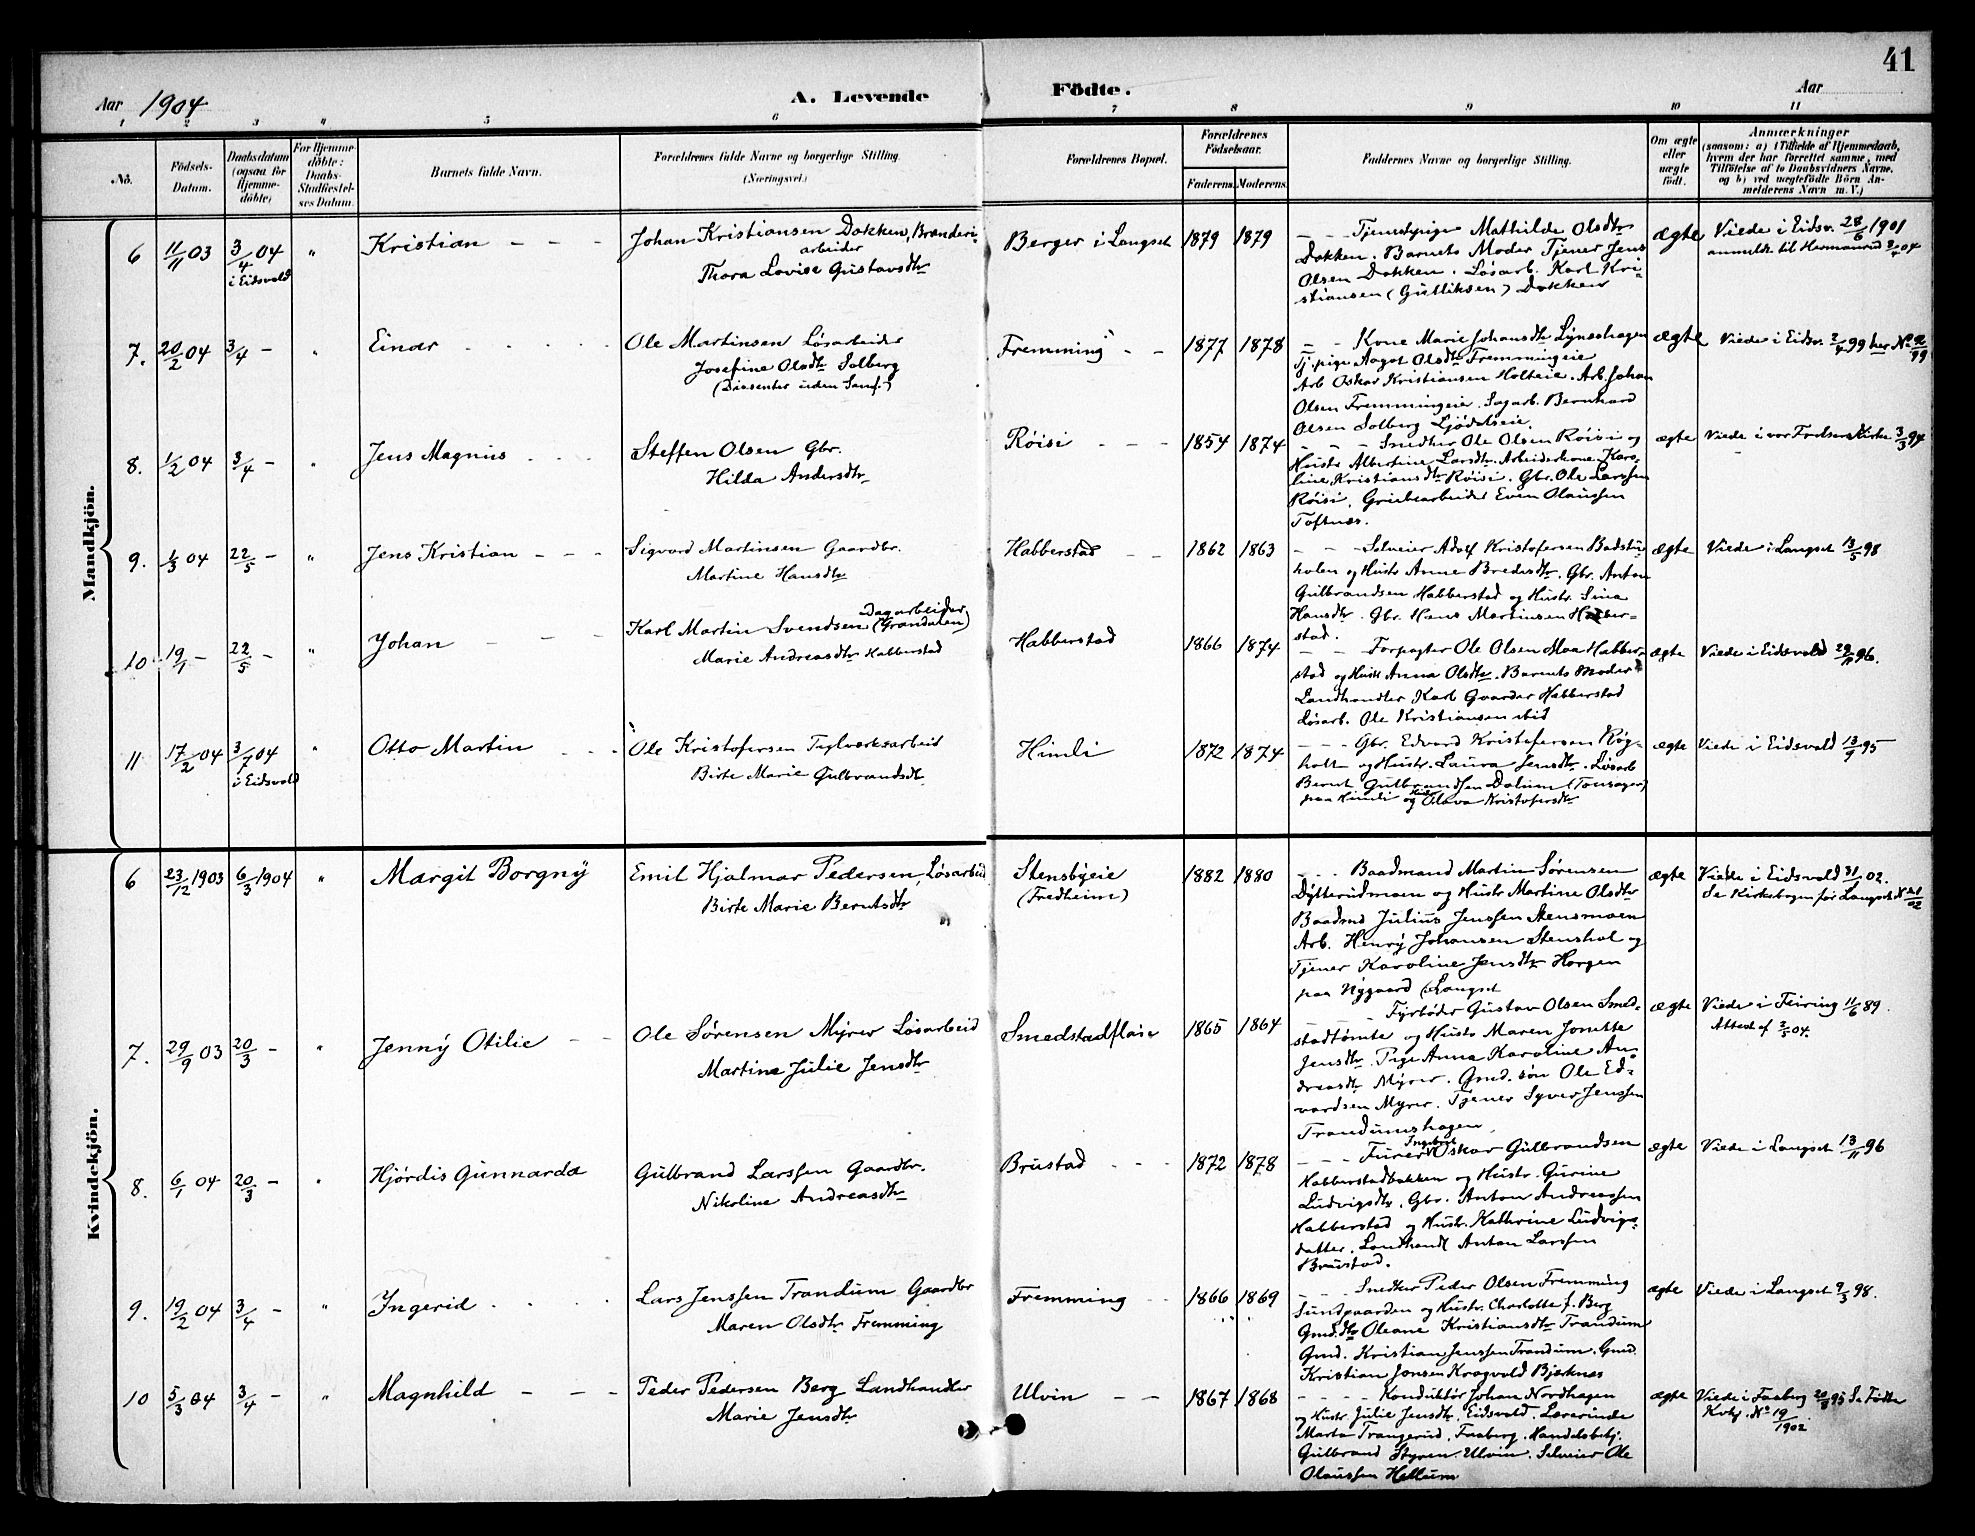 41
Aar 1904
A. Levende Födte.
Aar
1 2 3 4 5 6 7 8 9 10 11
No.
Födsels-Datum.
Daabsdatum (ogsaa for Hjemmedöbte)
For Hjemmedöbte: Daabs-Stadfæstelses Datum.
Barnets fulde Navn.
Forældrenes fulde Navne og borgerlige Stilling.
(Næringsvei.)
Forældrenes Bopæl.
Forældrenes Födselsaar.
Faderens. Moderens.
Faddernes Navne og borgerlige Stilling.
Om ægte eller uægte födt.
Anmærkninger
(saasom: a) i Tilfælde af Hjemmedaab,
hvem der har forrettet samme, med
Tilföielse af to Daabsvidners Navne.
og b) ved uægtefödte Börn Anmelderens Navn m. V.)
Mandkjön.
6 11/11 03 3/4 04 i Eidsvold " Kristian - - -
Johan Kristiansen Dokken, Brænderiarbeider
Thora Lovise Gustavsdtr
Berger i Langset 1879 1879
- - Tjenestpige Mathilde Olsdtr
Dokken. Barnets Moder Tjener Jens
Olsen Dokken. Løsarb. Karl Kristiansen (Gulliksen) Dokken
ægte
Viede i Eidsv. 28/6 1901
anmeldt til Hermanrud 2/4 04
7. 20/2 04 3/4 - " Einar - - - -
Ole Martinsen Løsarbeider
Josefine Olsdtr Solberg
(Dissenter uden Samf.)
Fremming - - 1877 1878
- - Kone Marie Johansdtr Lyneshagen
Tj.pige Aagot Olsdtr Fremmingeie
Arb Oskar Kristiansen Holteie. Arb. Johan
Olsen Fremmingeie. Sagarb. Bernhard
Olsen Solberg Ljødelseie.
ægte
Viede i Eidsv. 2/4 99 her No 2/99
8. 1/2 04 3/4 - " Jens Magnus - - -
Steffen Olsen Gbr.
Hilda Andersdtr
Røisi - - - 1854 1874
- - - Smedker Ole Olsen Røisi og
Hustr Albertine Larsdtr. Arbeiderkone Karoline Kristiansdtr Røisi. Gbr. Ole Larssen
Røisi. Grubearbeider Even Olaussen
Toftnæs.
ægte
Viede i vor Frelsers Kirke 3/3 94
9. 1/3 04 22/5 - " Jens Kristian - - -
Sigvard Martinsen Gaardbr.
Martine Hansdtr
Habberstad - - 1862 1863
- - Selveier Adolf Kristofersen Badstuholen og Hustr Anne Bredesdtr. Gbr. Anton
Gulbrandsen Habberstad og Hustr. Sina
Hansdtr. Gbr. Hans Martinsen Habberstad.
ægte
Viede i Langset 13/5 98
10 19/1 - 22/5 - " Johan - - -
Karl Martin Svendsen Dagarbeider (Grandalen)
Marie Andreasdtr Habberstad
Habberstad 1866 1874
- - Forpagter Ole Olsen Moa Habberstad og Hustr Anna Olsdtr. Barnets Moder
Landhandler Karl Gaarder Habberstad
Løsarb. Ole Kristiansen ibid
ægte
Viede i Eidsvold 29/11 96.
11 17/2 04 3/7 04 i Eidsvold " Otto Martin - - -
Ole Kristofersen Teglværksarbeid
Birte Marie Gulbrandsdt.
Himli 1872 1874
- - - Gbr. Edvard Kristofersen Røgholt og Hustr. Laura Jensdtr. Løsarb
Bernt Gulbrandsen Dalum (Tousager)
paa Himli og Hustr Olava Kristofersdtr
ægte
Viede i Eidsvold 13/9 95
Kvindekjön.
6 23/12 1903 6/3 1904 " Margit Borgny
Emil Hjalmar Pedersen, Løsarbeid
Birte Marie Berntsdtr
Stensbyeie
(Fredheim)
1882 1880
- - - Baadmand Martin Sørensen
Dytterudmoen og Hustr Martine Olsdtr
Baadsmd Julius Jenssen Stensmoen
Arb. Henry Johansen Stenshol og
Tjener Karoline Jensdtr Horgen
paa Nygaard (Langset
ægte
Viede i Eidsvold 31/ 02.
Se Kirkebogen for Langset No 21/02
7. 29/9 03 20/3 - " Jenny Otilie - -
Ole Sørensen Myrer Løsarbeid
Martine Julie Jensdtr
Smedstadflaie 1865 1864
- - - Fyrbøder Gustav Olsen Smedstadtomte og Hustr Maren Jonette
Jensdtr. Pige Anna Karoline Andreasdtr Myrer. Gmd. søn Ole Edvardsen Myrer. Tjener Syver Jenssen
Trandumshagen.
ægte
Viede i Feiring 11/6 89.
Attest af 2/5 04.
8. 6/1 04 20/3 - " Hjørdis Gunnarda
Gulbrand Larssen Gaardbr.
Nikoline Andreasdtr
Brustad - - - 1872 1878
- - - Furer Ingebret Oskar Gulbrandsen
Habberstadbakken og Hustr. Gurine
Ludvigsdtr. Gbr. Anton Andreassen
Habberstad og Hustr. Kathrine Ludvigsdatter. Landhandl Anton Larssen
Brustad.
ægte
Viede i Langset 13/11 96
9. 19/2 04 3/4 - " Ingerid - - - -
Lars Jenssen Trandum Gaardbr
Maren Olsdtr Fremming
Fremming - - 1866 1869
- - - Snedker Peder Olsen Fremming
Sundgaarden og Hustr. Charlotte f. Berg
Gmd.dtr Oleane Kristiansdtr Trandum
Gmd. Kristian Jenssen Trandum. Gmd.
Kristian Jensen Kragvold Bjørknes
ægte
Viede i Langset 9/3 98.
10 5/3 04 3/4 - " Magnhild - - -
Peder Pedersen Berg Landhandler
Marie Jensdtr
Ulvin - - 1867 1868
- - - - Konduktør Johan Nordhagen
og Hustr Julie Jensdtr. Eidsvold. Lærerinde
Marta Trangerud, Faaberg. Handelsbetj.
Gulbrand Styren. Ulvin. Selveier Ole
Olaussen Hellum
ægte
Viede i Faaberg 20/8 95 Se Fødte
Kvkj. No 19/1902.